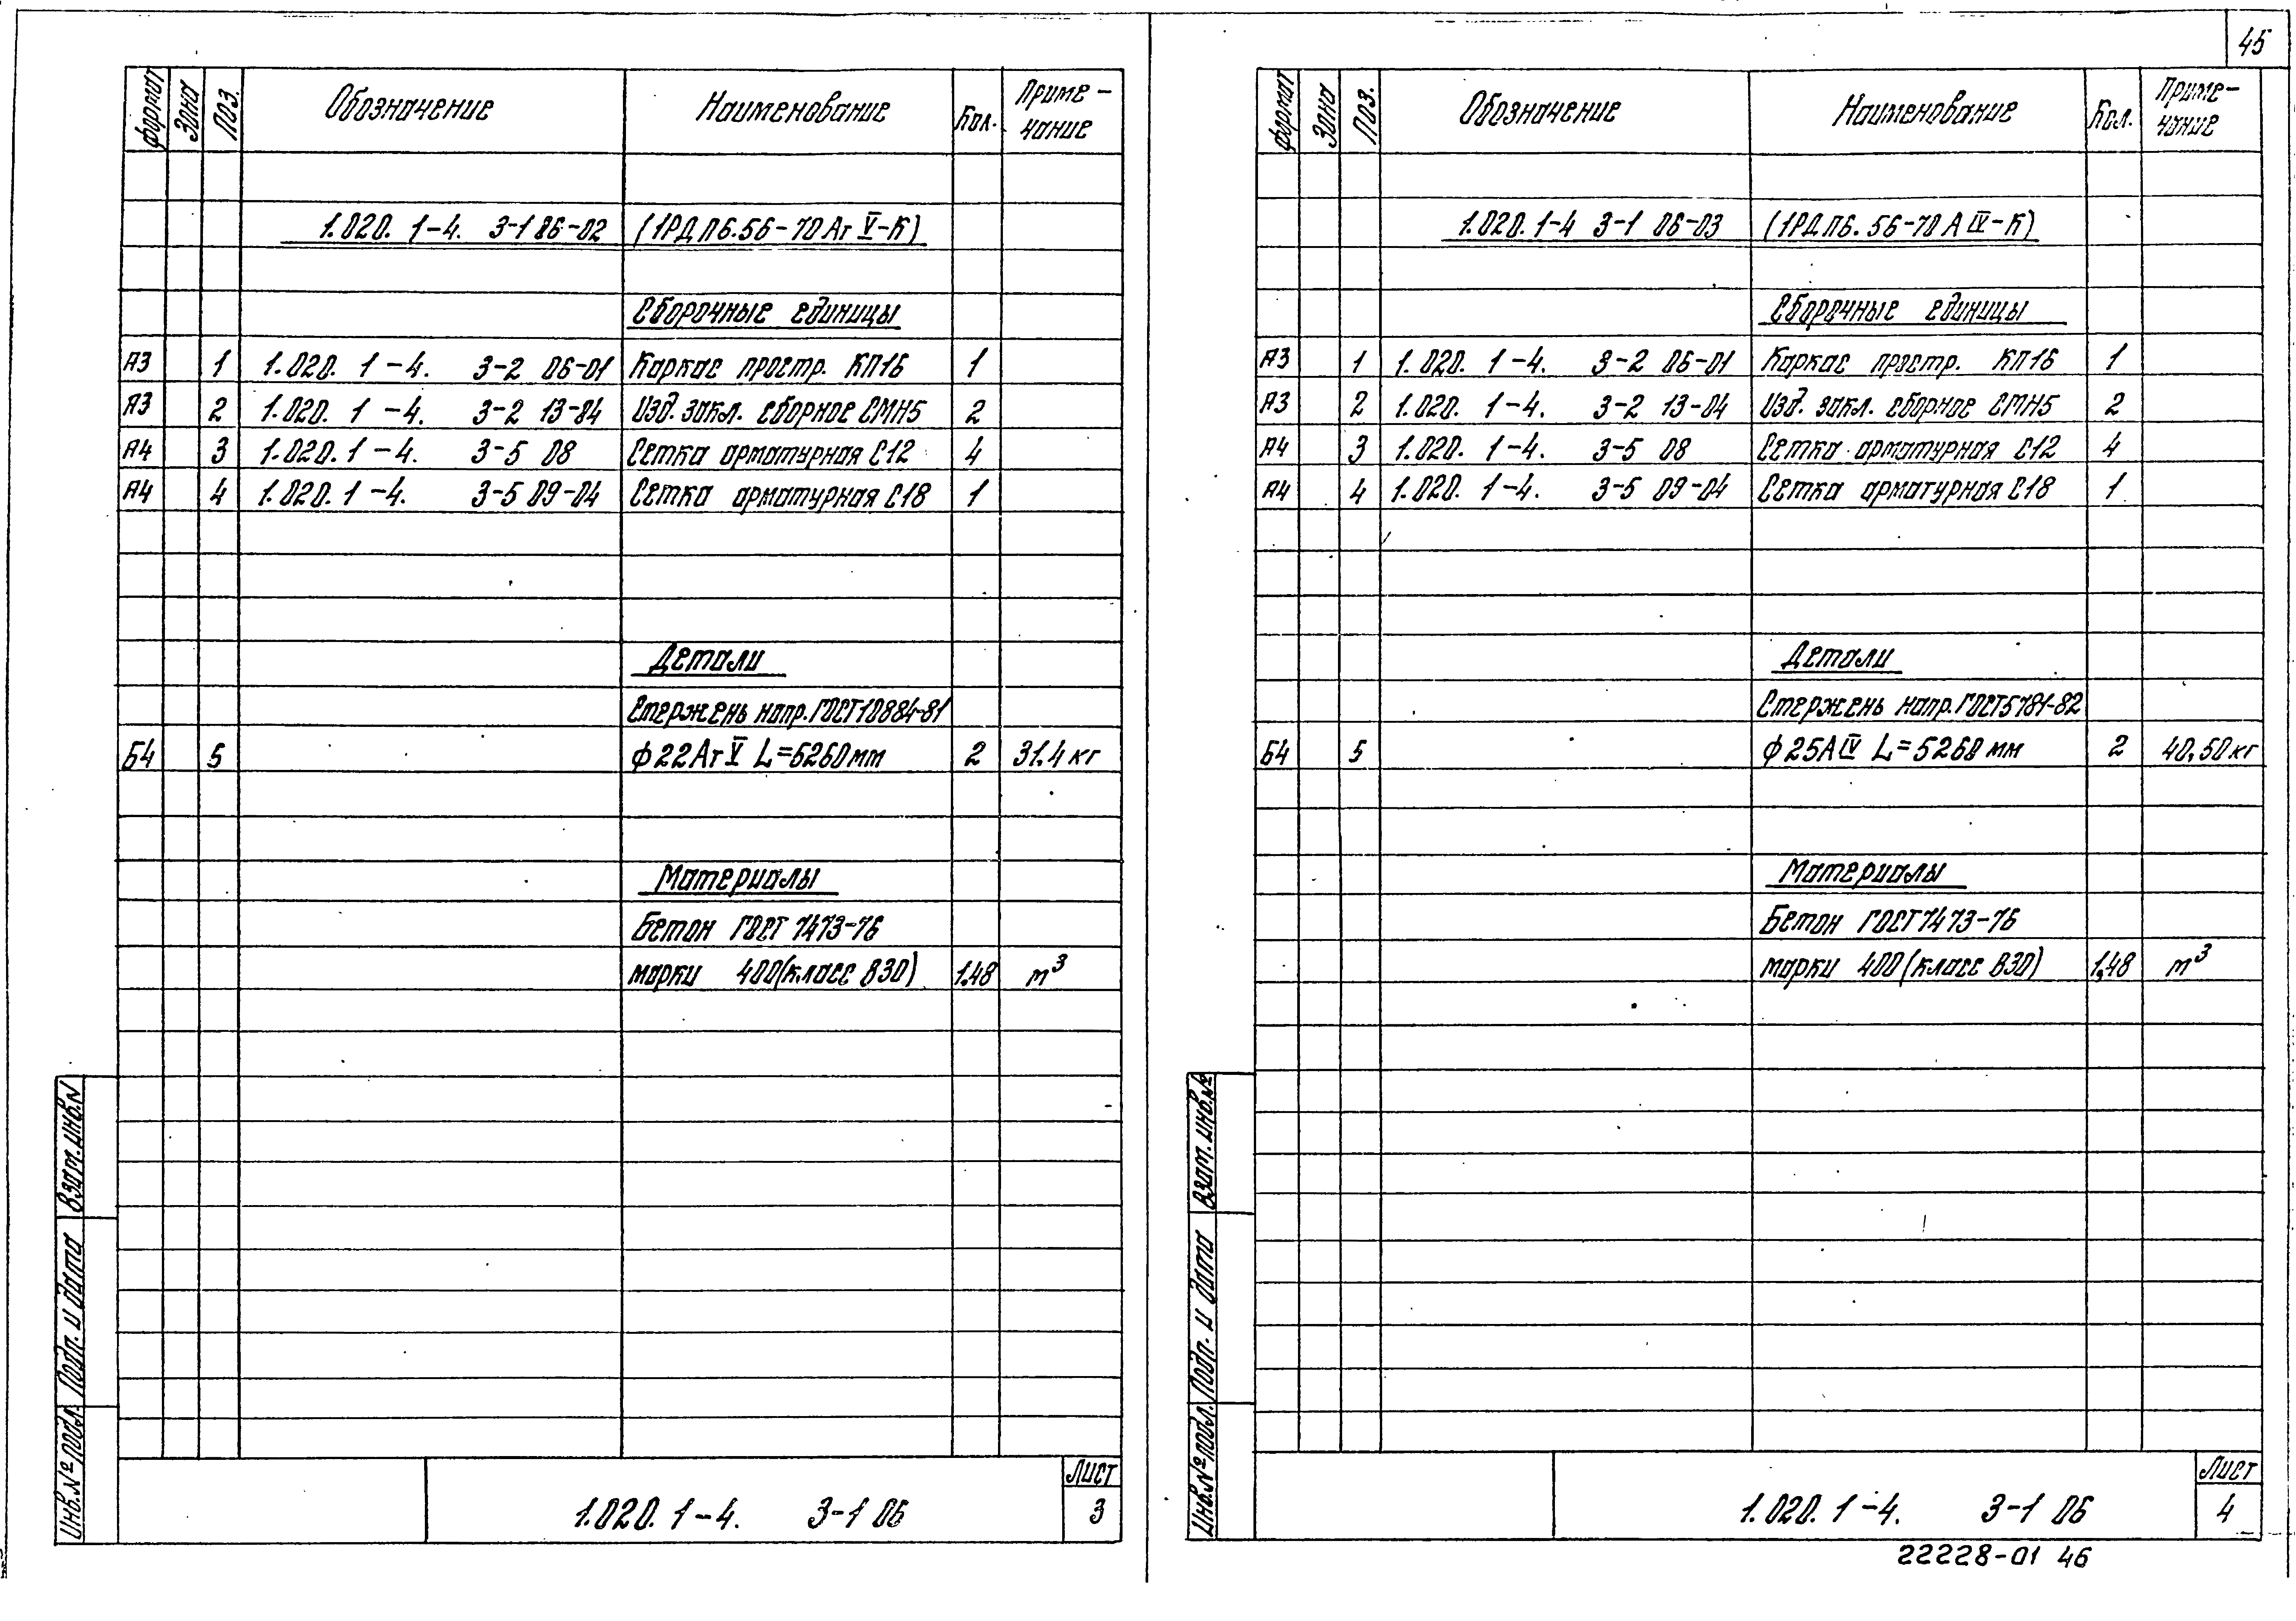 45
формат Зона Поз. Обозначение Наименование Кол. Приме-
чание
1.020. 1-4. 3-1 06-02 (1РДП6.56-70АтV-К)
Сборочные единицы
А3 1 1.020. 1-4. 3-2 06-01 Каркас простр. КП16 1
А3 2 1.020. 1-4. 3-2 13-04 Изд. закл. сборное СМН5 2
А4 3 1.020. 1-4. 3-5 08 Сетка арматурная С12 4
А4 4 1.020. 1-4. 3-5 09-04 Сетка арматурная С18 1
Детали
Стержень напр. ГОСТ 10884-81
Б4 5 ф22АтV L=5260мм 2 31.4 кг
Материалы
Бетон ГОСТ 7473-76
марки 400 (класс В30) 1.48 m³
Взам. инв. N
Подп. и дата
Инв. № подл.
1.020. 1-4. 3-1 06
Лист
3
формат Зона Поз. Обозначение Наименование Кол. Приме-
чание
1.020. 1-4 3-1 06-03 (1РДП6.56-70АIV-К)
Сборочные единицы
А3 1 1.020. 1-4. 3-2 06-01 Каркас простр. КП16 1
А3 2 1.020. 1-4. 3-2 13-04 Изд. закл. сборное СМН5 2
А4 3 1.020. 1-4. 3-5 08 Сетка арматурная С12 4
А4 4 1.020. 1-4. 3-5 09-04 Сетка арматурная С18 1
Детали
Стержень напр. ГОСТ 5781-82
Б4 5 ф25АIV L=5260мм 2 40,50 кг
Материалы
Бетон ГОСТ 7473-76
марки 400 (класс В30) 1,48 m³
Взам. инв. №
Подп. и дата
Инв. № подл.
1.020. 1-4. 3-1 06
Лист
4
22228-01 46